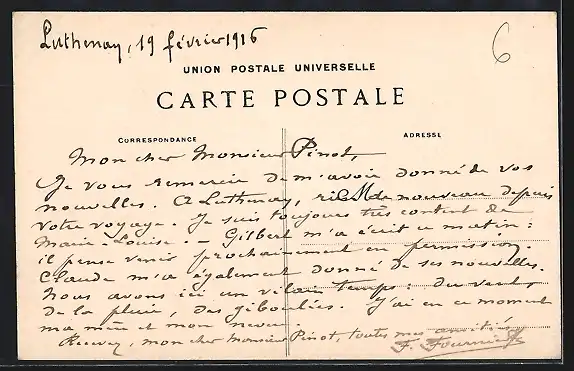 Luthenay, 19 février 1916
6
UNION POSTALE UNIVERSELLE
CARTE POSTALE
CORRESPONDANCE
ADRESSE
Mon cher Monsieur Pinot,
Je vous remercie de m'avoir donné de vos
nouvelles. A Luthenay, rien de nouveau depuis
votre voyage. Je suis toujours très content de
Marie-Louise. – Gilbert m'a écrit ce matin :
il pense venir prochainement en permission.
Claude m'a également donné de ses nouvelles.
Nous avons ici un vilain temps : du vent,
de la pluie, des giboulées. J'ai en ce moment
ma mère et mon neveu.
Recevez, mon cher Monsieur Pinot, toutes mes amitiés
F. Fournier